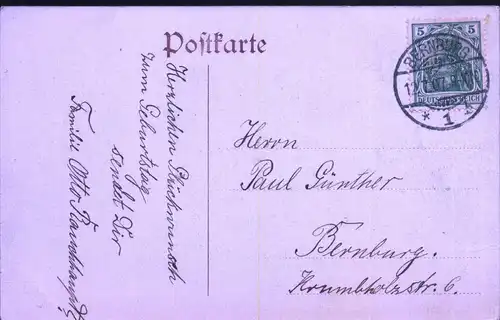 Postkarte
Herzlichen Glückwunsch
zum Geburtstag
sendet Dir
Familie Otto
Herrn
Paul Günther
Bernburg.
Krumbholzstr. 6.
5 5
DEUTSCHES REICH
BERNBURG
* 1